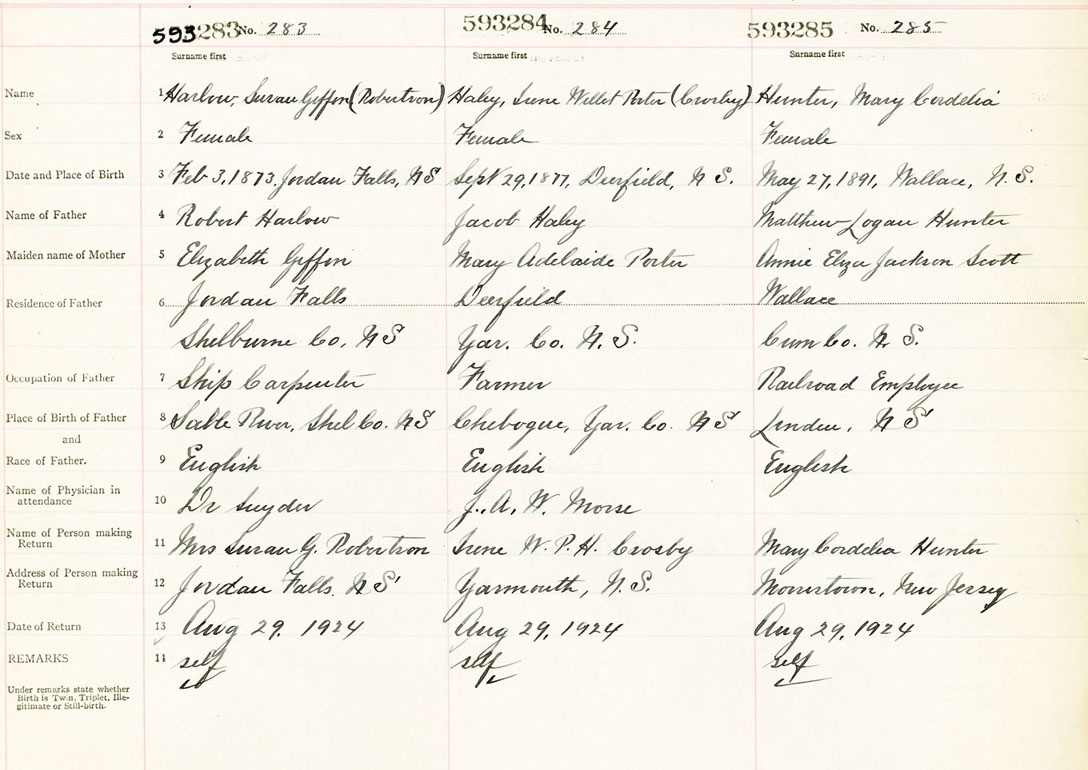 593283 No. 283 593284 No. 284 593285 No. 285
Surname first Surname first Surname first
Name 1 Harlow, Susan Giffin (Robertson) Haley, Irene Willet Porter (Crosby) Hunter, Mary Cordelia
Sex 2 Female Female Female
Date and Place of Birth 3 Feb 3, 1873, Jordan Falls, NS Sept 29, 1877, Deerfield, N. S. May 27, 1891, Wallace, N. S.
Name of Father 4 Robert Harlow Jacob Haley Matthew Logan Hunter
Maiden name of Mother 5 Elizabeth Giffin Mary Adelaide Porter Annie Eliza Jackson Scott
Residence of Father 6 Jordan Falls Deerfield Wallace
Shelburne Co. NS Yar. Co. N. S. Cum Co. N. S.
Occupation of Father 7 Ship Carpenter Farmer Railroad Employee
Place of Birth of Father 8 Sable River, Shel Co. NS Chebogue, Yar. Co. NS Linden, NS
and
Race of Father. 9 English English English
Name of Physician in
attendance 10 Dr Snyder J. A. W. Morse
Name of Person making
Return 11 Mrs Susan G. Robertson Irene W. P. H. Crosby Mary Cordelia Hunter
Address of Person making
Return 12 Jordan Falls, NS Yarmouth, N. S. Morristown, New Jersey
Date of Return 13 Aug 29, 1924 Aug 29, 1924 Aug 29, 1924
REMARKS 14 self self self
Under remarks state whether
Birth is Twin, Triplet, Ille-
gitimate or Still-birth.